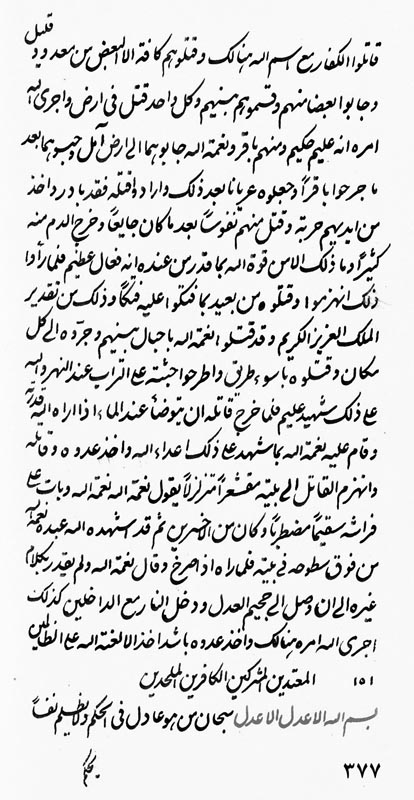 قاتلوا الكفار مع اسم الله هنالك وقتلوهم كافة الا البعض من معدود
قليل
وجابوا بعضا منهم وقسموهم بينهم وكل واحد قتل فی ارض واجری الله
امره انه عليم حكيم ومنهم باقر ونعمة الله جابوهما الی ارض آمل وحبسوهما بعد
ما جرحوا باقراً وجعلوه عريانا بعد ذلك واراد قتله فقد بادر واخذ
من ايديهم حربة وقتل منهم نفوساً بعد ما كان جايعاً وخرج الدم منه
كثيراً وما ذلك الا من قوة الله بما قدر من عنده انه فعال عظيم فلما رأوا
ذلك انهزموا وقتلوه من بعيد بما فتكوا عليه فتكاً وذلك من تقدير
الملك العزيز الكريم وقد قتلوا نعمة الله باحبال بينهم وجروه الی كل
مكان وقتلوه باسوء طريق واطرحوا جثته علی التراب عند النهر والله
علی ذلك شهيد عليم فلما خرج قاتله ان يتوضأ عند الماء اذا اراه الله قدرته
وقام عليه نعمة الله بما شهد علی ذلك اعداء الله واخذ عدوه وقاتله
وانهزم القاتل الی بيته مقشعراً متزلزلاً يقول نعمة الله نعمة الله وبات علی
فراشه سقيماً مضطرباً وكان من الاخسرين ثم قد اشهده الله عبده نعمة الله
من فوق سطوحه فی بيته فلما راه اذا صرخ وقال نعمة الله ولم يقدر بكلام
غيره الی ان وصل الی جحيم العدل ودخل النار مع الداخلين كذلك
اجری الله امره هنالك واخذ عدوه باشد اخذ الا لعنة الله علی الظالمين
المعتدين المشركين الكافرين الملحدين
١٥١
بسم الله الاعدل الاعدل سبحان من هو عادل فی الحكم ولا يظلم نفساً
يحكم
٣٧٧